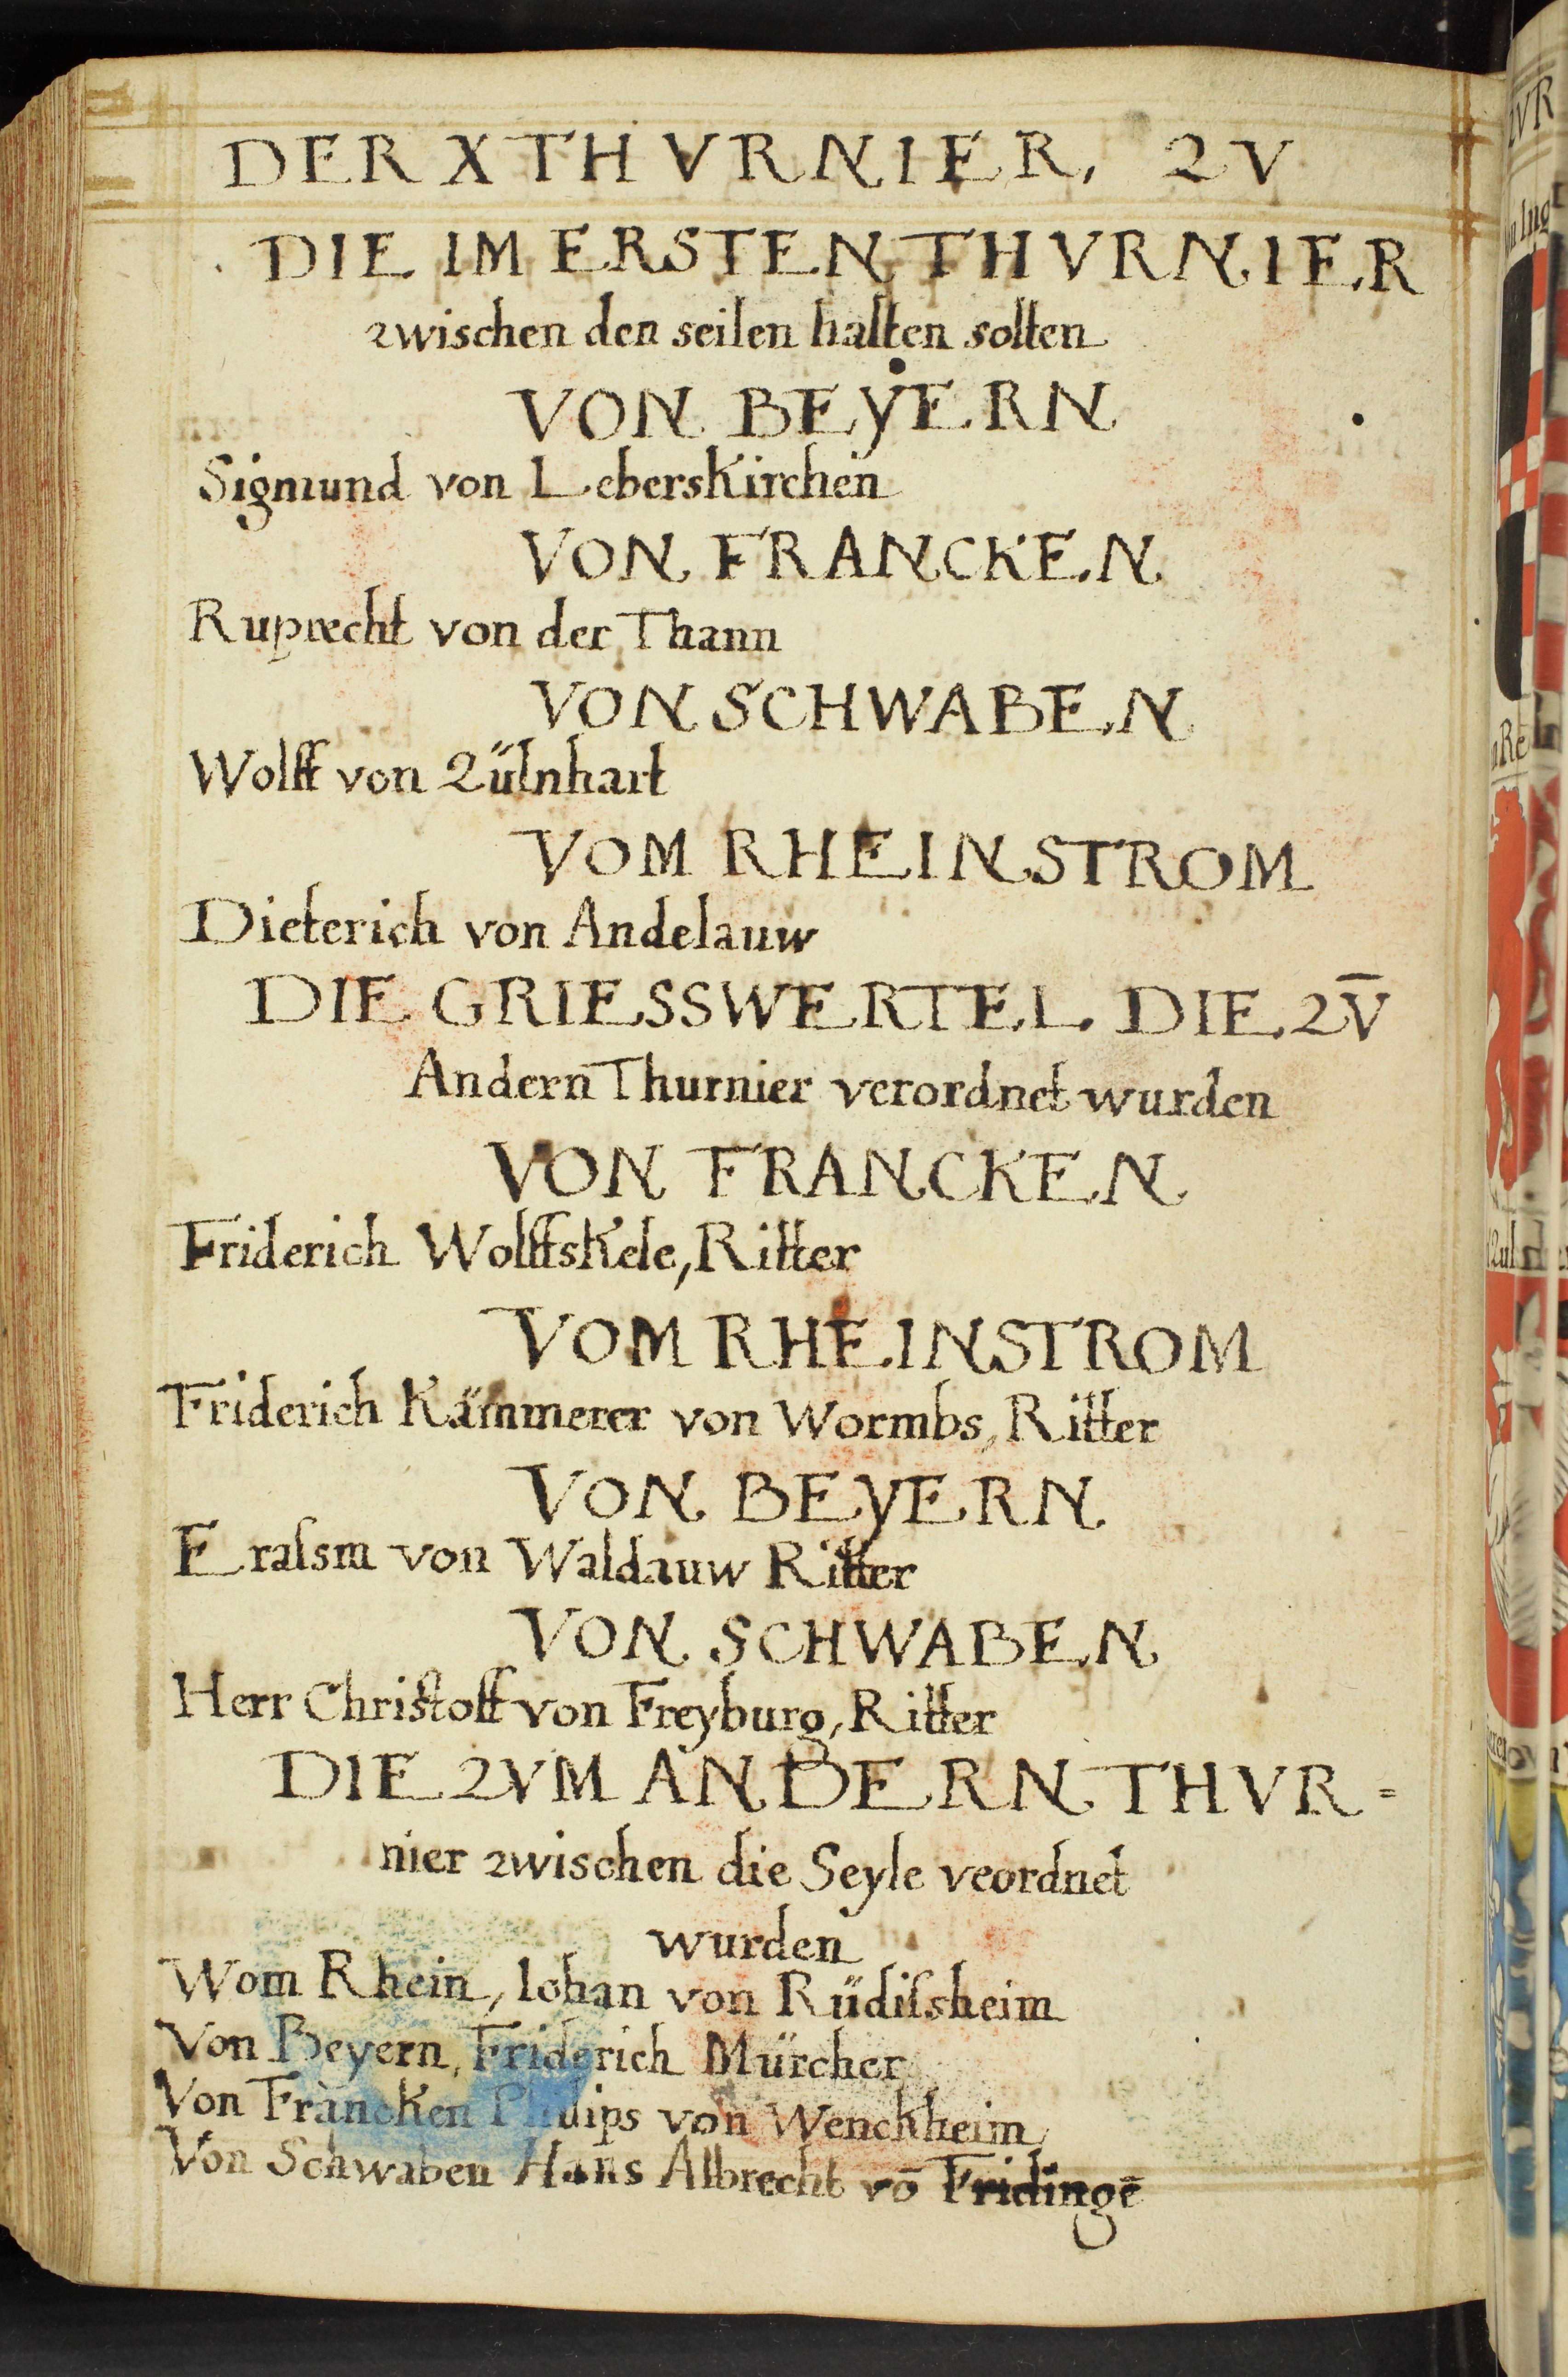 DER X THVRNIER, ZV
DIE IM ERSTEN THVRNIER
zwischen den seilen halten solten
VON BEYERN
Sigmund von Leberskirchen
VON FRANCKEN
Ruprecht von der Thann
VON SCHWABEN
Wolff von Zülnhart
VOM RHEINSTROM
Dieterich von Andelauw
DIE GRIESSWERTEL DIE ZV̄
Andern Thurnier verordnet wurden
VON FRANCKEN
Friderich Wolffskele, Ritter
VOM RHEINSTROM
Friderich Kämmerer von Wormbs, Ritter
VON BEYERN
Eraſsm von Waldauw Ritter
VON SCHWABEN
Herr Christoff von Freyburg, Ritter
DIE ZVM ANDERN THVR=
nier zwischen die Seyle veordnet
wurden
Wom Rhein, Iohan von Rüdiſsheim
Von Beyern, Friderich Mürcher
Von Francken Philips von Wenckheim
Von Schwaben Hans Albrecht vō Fridingē